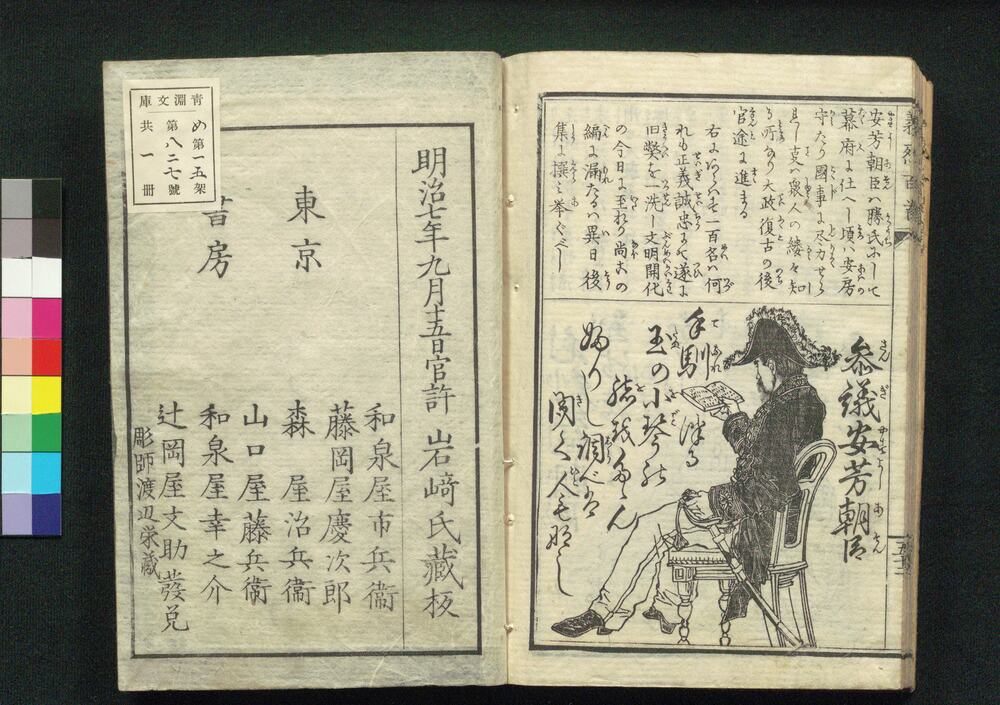 義烈百首
安芳朝臣ハ勝氏にして
幕府に仕へし頃ハ安房
守たり國事に尽力せら
れし事ハ衆人の縷々知
る所なり大政復古の後
官途に進まる
右にあらハす一百名ハ何
れも正義誠忠にて遂に
旧弊を一洗し文明開化
の今日に至れり尚この
編に漏たるハ異日後
集に撰ミ挙ぐべし
参議安芳朝臣
手馴つる
玉の小琴の
ふりし調べは
聞く人もなし
明治七年九月十五日官許 岩﨑氏藏板
東京
書房
和泉屋市兵衞
藤岡屋慶次郎
森屋治兵衞
山口屋藤兵衞
和泉屋幸之介
辻岡屋文助發兌
彫師渡辺栄蔵
青淵文庫
め第一五架
第八二七號
共一冊